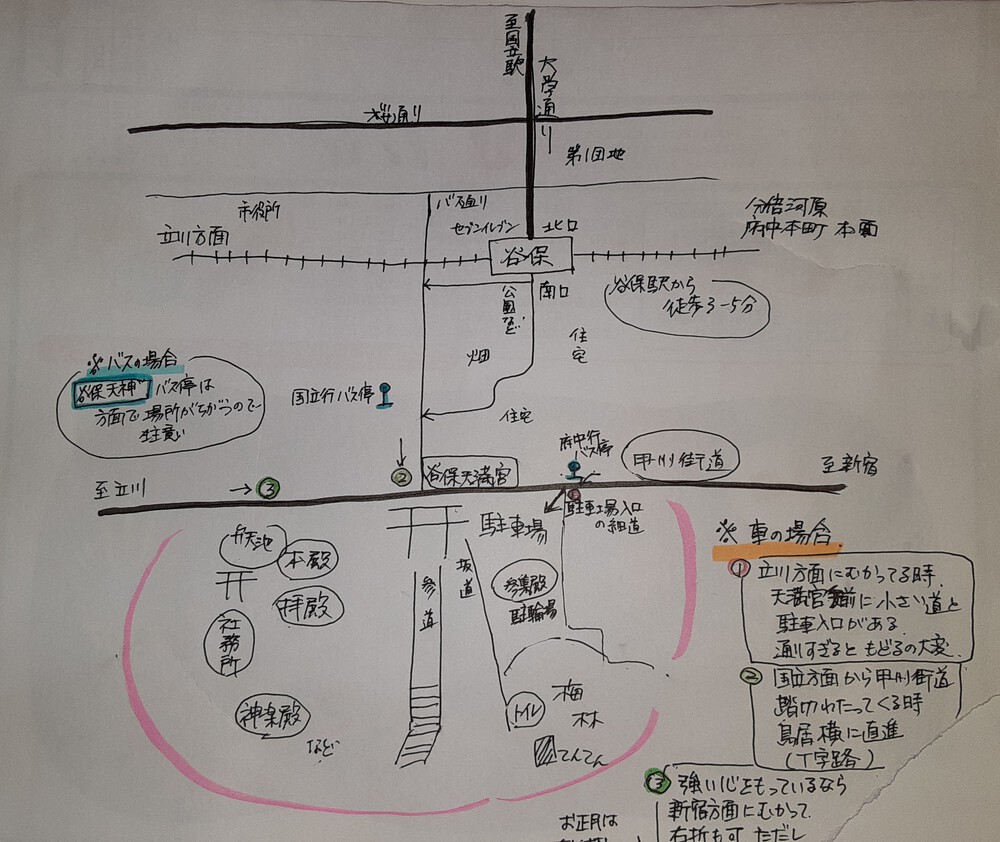 至国立駅
大学通り
桜通り
第1団地
市役所
バス通り
セブンイレブン
北口
立川方面
谷保
分倍河原
府中本町
南口
公園など
谷保駅から
徒歩3-5分
住宅
畑
※バスの場合
谷保天神 バス停は
方面で場所がちがうので
注意
国立行バス停
住宅
府中行
バス停
甲州街道
至新宿
至立川
→③
②
谷保天満宮
①
駐車場入口
の細道
駐車場
弁天池
本殿
参道
坂道
参集殿
駐輪場
拝殿
社務所
神楽殿
など
トイレ
梅
林
てんてん
※ 車の場合
① 立川方面にむかってる時
天満宮前に小さい道と
駐車入口がある
通りすぎると もどるの大変
② 国立方面から甲州街道
踏切わたってくる時
鳥居横に直進
(T字路)
③ 強い心をもっているなら
新宿方面にむかって
右折も可 ただし
お正月は